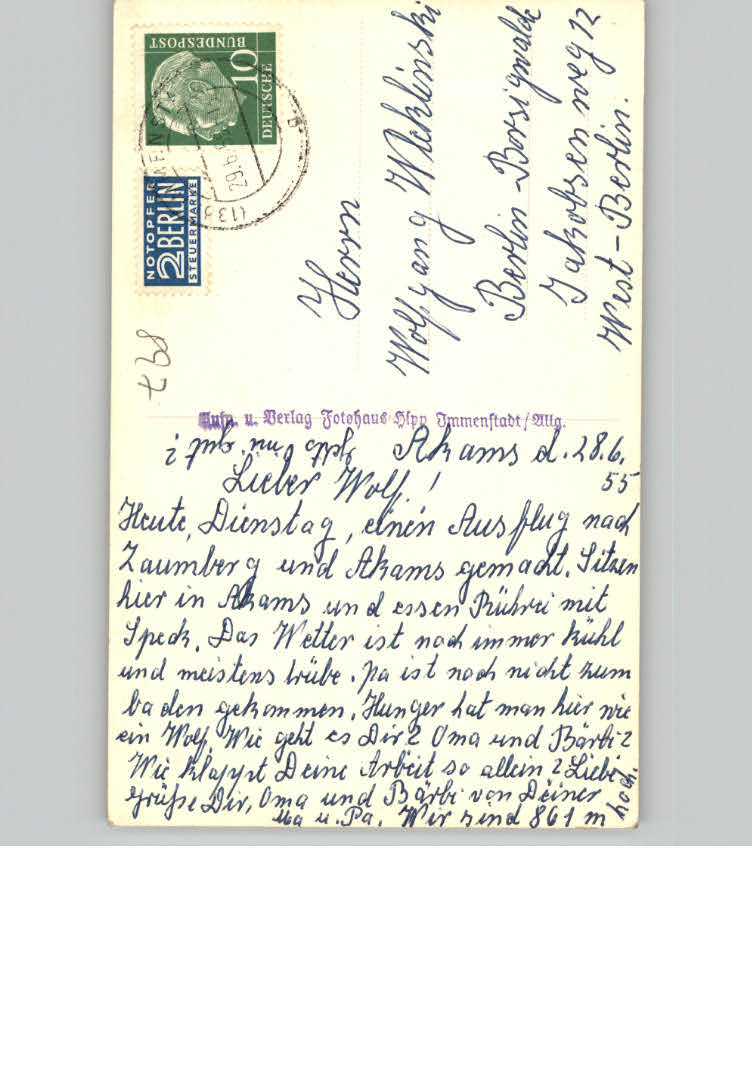 DEUTSCHE
BUNDESPOST
10
29.6.
(13b)
NOTOPFER
2 BERLIN
STEUERMARKE
Herrn
Wolfgang Wicklinski
Berlin-Borsigwalde
Jakobsenweg 12
West-Berlin.
Aufn. u. Verlag Fotohaus Hipp Immenstadt/Allg.
Akams d. 28.6.
55
Lieber Wolf!
Heute, Dienstag, einen Ausflug nach
Zaumberg und Akams gemacht. Sitzen
hier in Akams und essen Rührei mit
Speck. Das Wetter ist noch immer kühl
und meistens trübe. Pa ist noch nicht zum
baden gekommen. Hunger hat man hier wie
ein Wolf. Wie geht es Dir? Oma und Bärbi?
Wie klappt Deine Arbeit so allein? Liebe
Grüße Dir, Oma und Bärbi von Deiner
Ma u. Pa. Wir sind 861 m hoch.